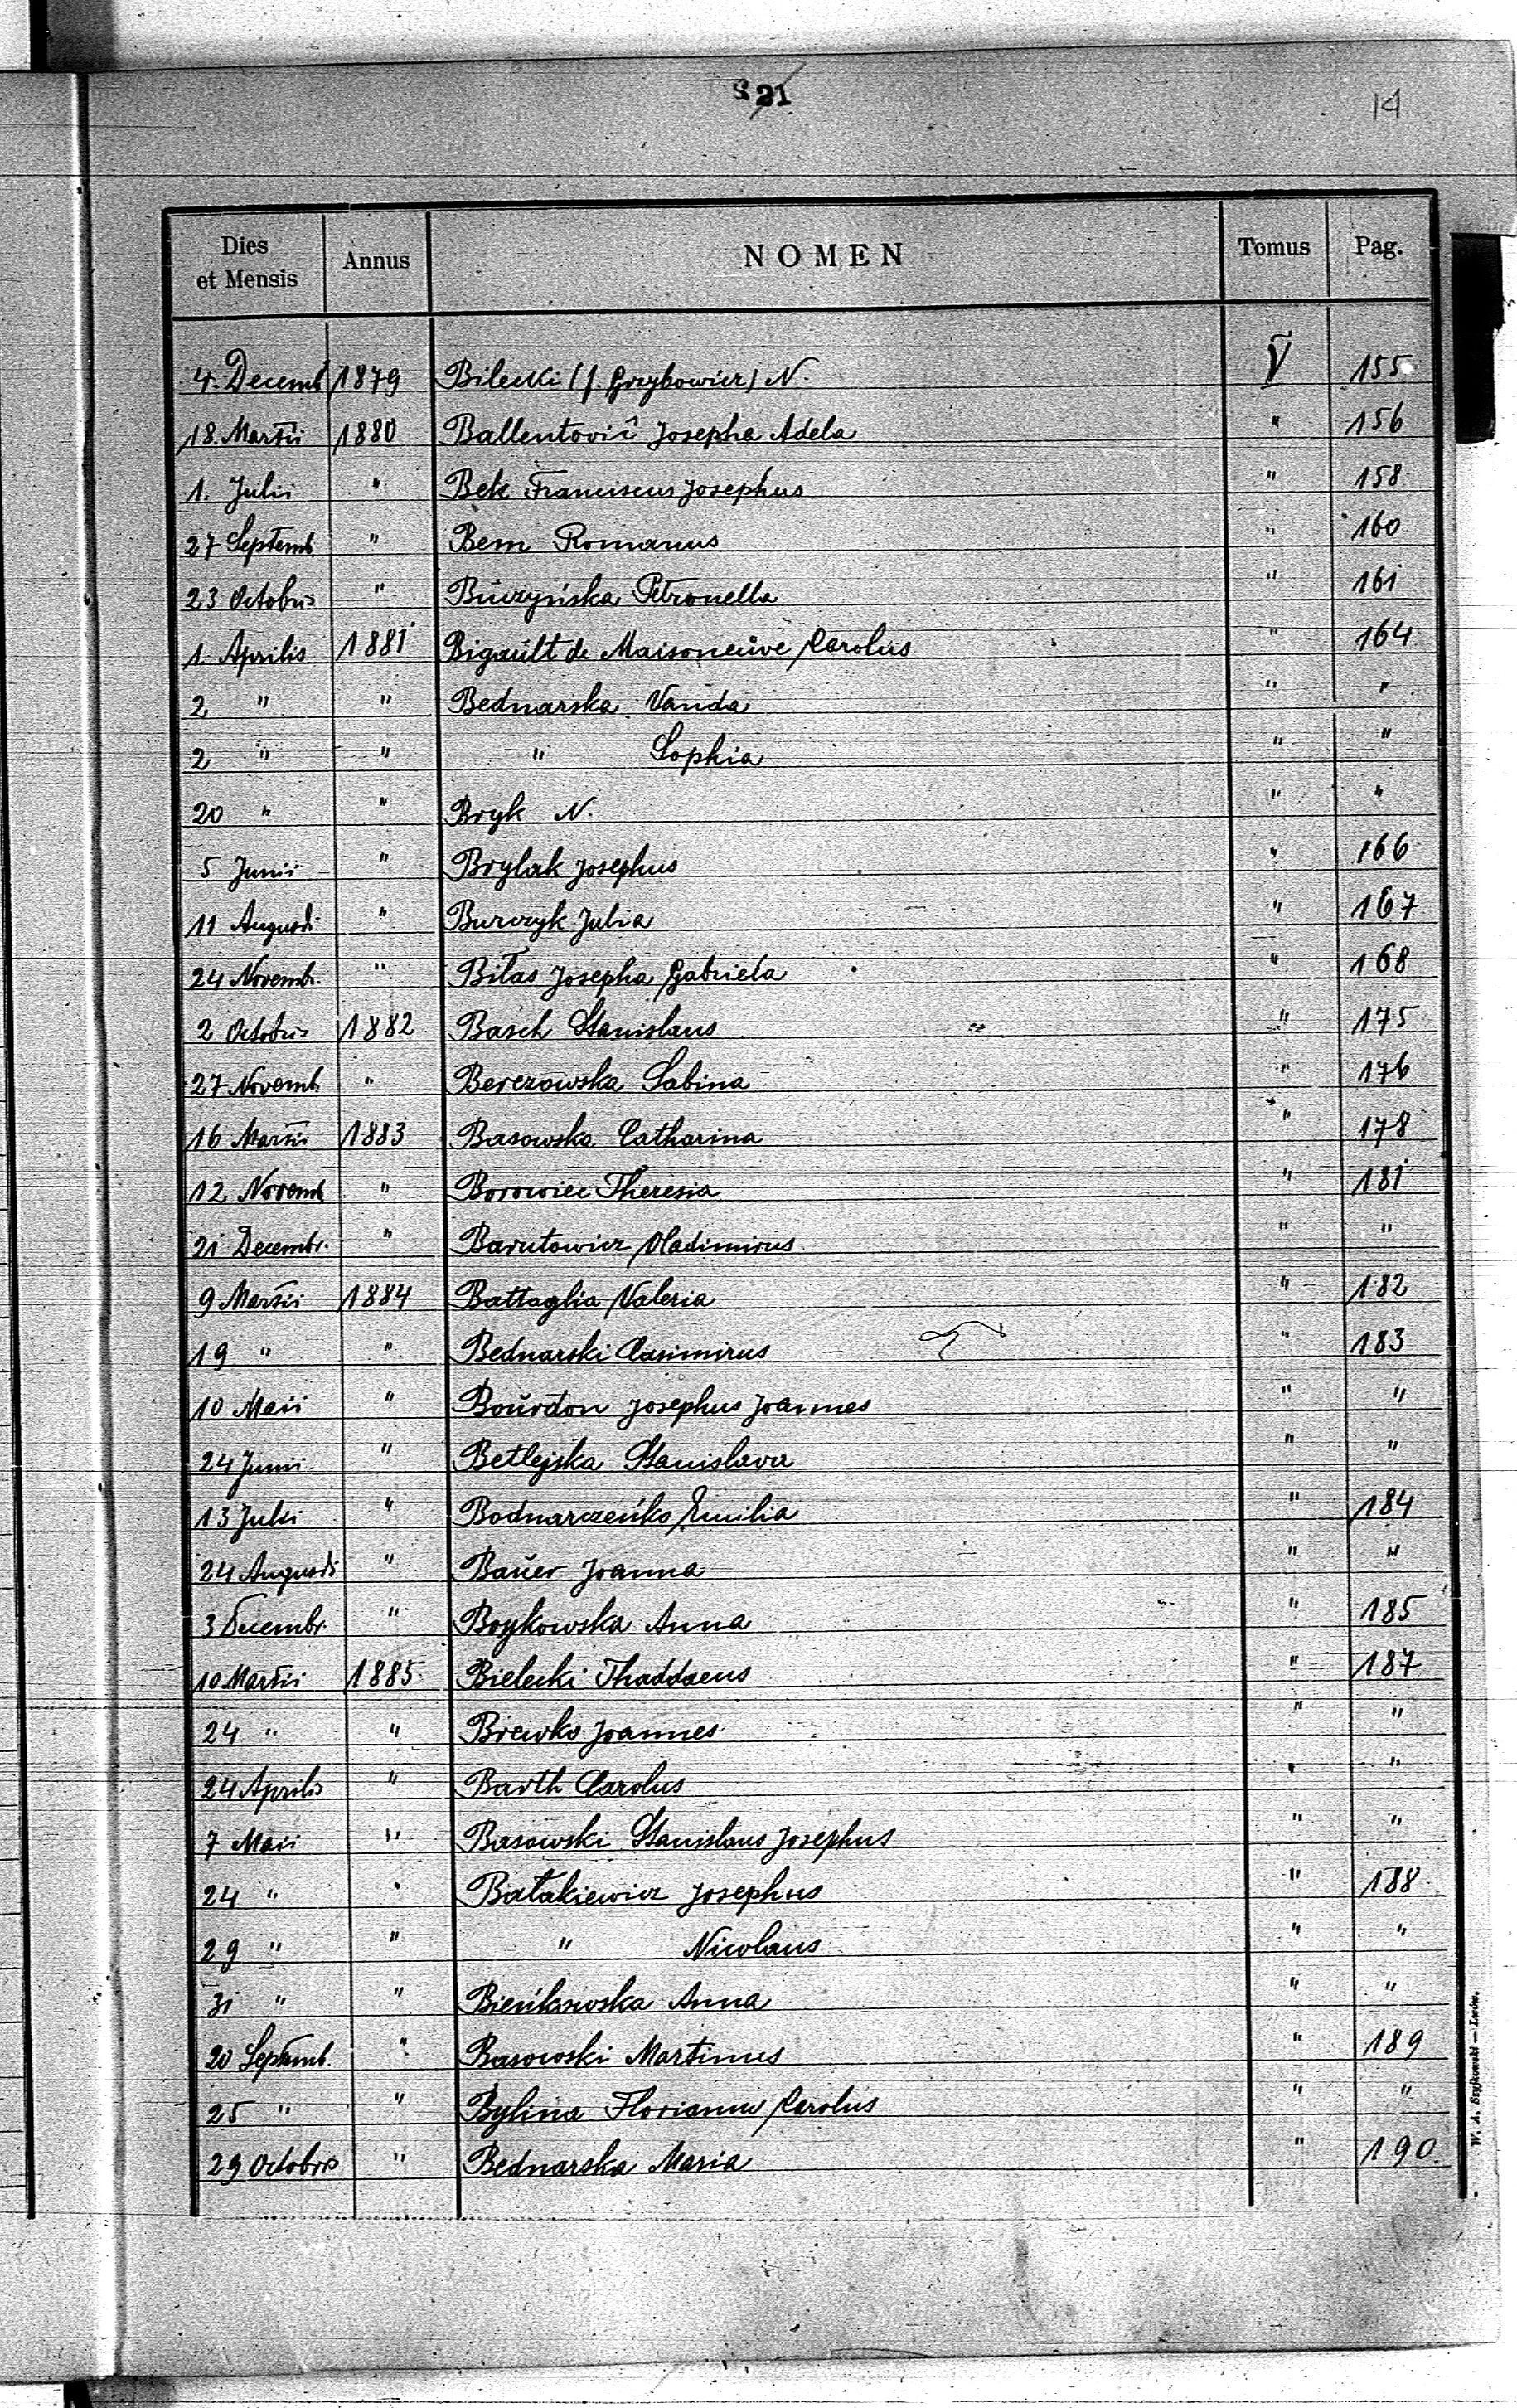 S 21
14
Dies et Mensis Annus NOMEN Tomus Pag.
4. Decemb 1879 Bilecki (f. Grzybowicz) N. V 155
18. Martii 1880 Ballentović Josepha Adela " 156
1. Julii " Bek Franciscus Josephus " 158
27 Septemb " Bem Romanus " 160
23 Octobris " Buczyńska Petronella " 161
1. Aprilis 1881 Bigault de Maisoneuve Carolus " 164
2 " " Bednarska Vanda " "
2 " " " Sophia " "
20 " " Bryk N. " "
5 Junii " Brylak Josephus " 166
11 Augusti " Burczyk Julia " 167
24 Novemb. " Biłas Josepha Gabriela " 168
2 Octobris 1882 Basch Stanislaus " 175
27 Novemb. " Berezowska Sabina " 176
16 Martii 1883 Basowska Catharina " 178
12 Novemb " Borowiec Theresia " 181
21 Decembr. " Barutowicz Vladimirus " "
9 Martii 1884 Battaglia Valeria " 182
19 " " Bednarski Casimirus " 183
10 Maii " Bourdon Josephus Joannes " "
24 Junii " Betlejska Stanislava " "
13 Julii " Bodnarczeńko Emilia " 184
24 Augusti " Bauer Joanna " "
3 Decembr. " Boykowska Anna " 185
10 Martii 1885 Bielecki Thaddaeus " 187
24 " " Joannes " "
24 Aprilis " Barth Carolus " "
7 Maii " Basowski Stanislaus Josephus " "
24 " " Batakiewicz Josephus " 188
29 " " " Nicolaus " "
31 " " Bieńkowska Anna " "
20 Septemb. " Basowski Martinus " 189
25 " " Bylina Florianus Carolus " "
29 Octobris " Bednarska Maria " 190.
W. A. Szyjkowski — Lwów.